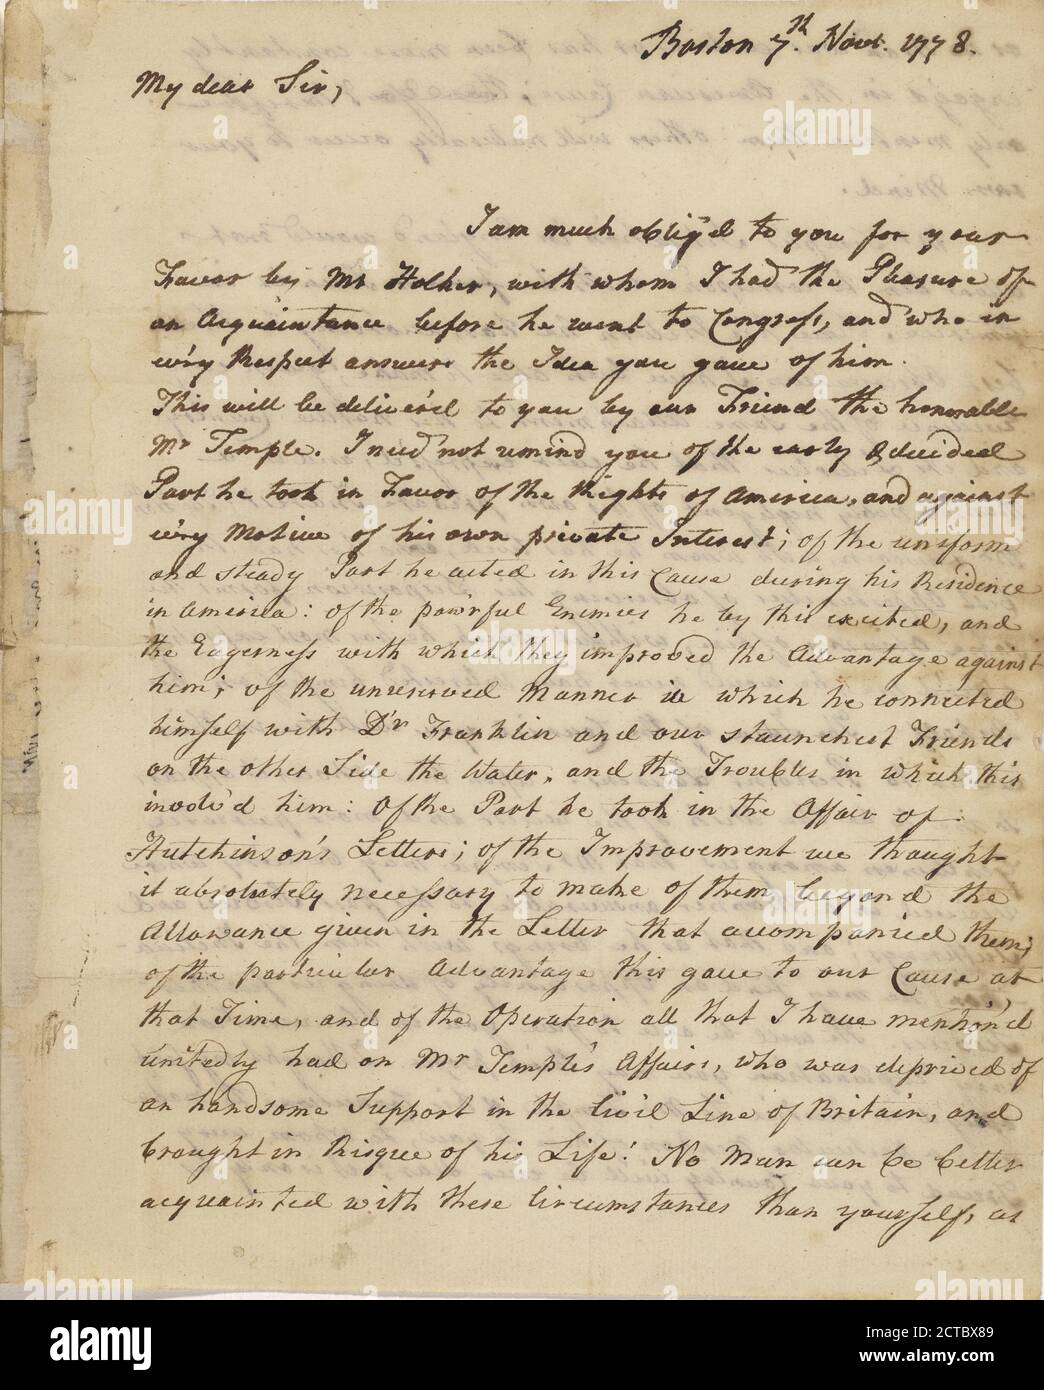 Boston 7.th Novr. 1778.
My dear Sir,
I am much oblig'd to you for your
Favor by Mr Holker, with whom I had the Pleasure of
an Acquaintance before he went to Congress, and who in
ev'ry Respect answers the Idea you gave of him.
This will be deliver'd to you by our Friend the honorable
Mr Temple. I need not remind you of the early & decided
Part he took in Favor of the Rights of America, and against
ev'ry Motive of his own private Interest; of the uniform
and steady Part he acted in this Cause during his Residence
in America: of the pow'rful Enemies he by this excited, and
the Eagerness with which they improved the Advantage against
him; of the unreserved Manner in which he connected
himself with Dr Franklin and our staunchest Friends
on the other Side the Water, and the Troubles in which this
involv'd him: Of the Part he took in the Affair of
Hutchinson's Letters; of the Improvement we thought
it absolutely necessary to make of them beyond the
Allowance given in the Letter that accompanied them;
of the particular Advantage this gave to our Cause at
that Time, and of the Operation all that I have mention'd
unitedly had on Mr Temple's Affairs, who was deprived of
an handsome Support in the Civil Line of Britain, and
brought in Risque of his Life! No Man can be better
acquainted with these Circumstances than yourself, as
alamy
Image ID: 2CTBX89
www.alamy.com